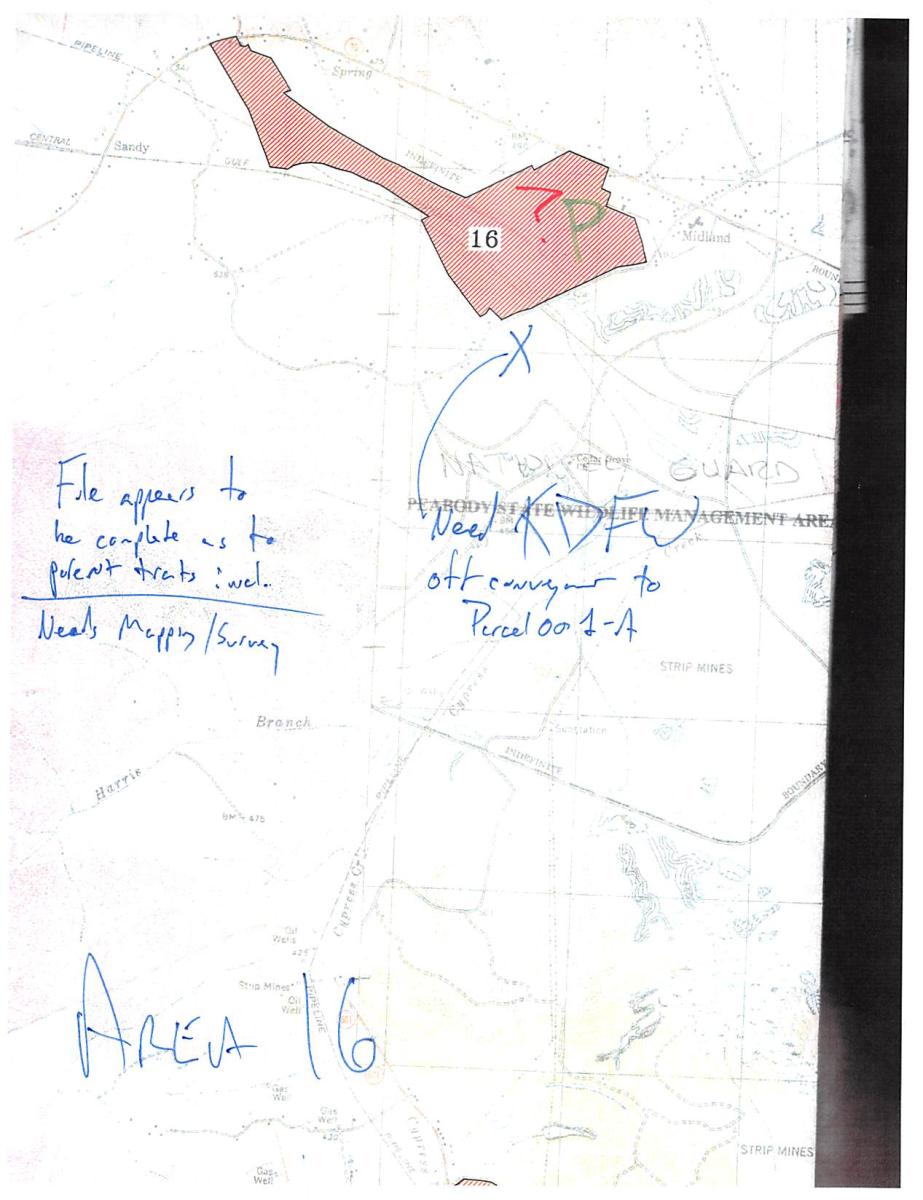 PIPELINE
Spring
CENTRAL
Sandy
GULF
INDEFINITE
?
P
16
Midland
528
X
NATIONAL GUARD
PEABODY STATE WILDLIFE MANAGEMENT AREA
File appears to
be complete as to
parent tracts incl.
Needs Mapping/Survey
Need KDFW
off conveyance to
Parcel 001-A
STRIP MINES
Cypress
Substation
Branch
INDEFINITE
BOUNDARY
Harris
BM 475
PIPELINE
Cypress Cr
Oil
Wells
425
Strip Mines
Oil
Well
PIPELINE
AREA 16
Gas
Well
Gas
Well
430
Cypress
PIPELINE
STRIP MINES
Gas
Well